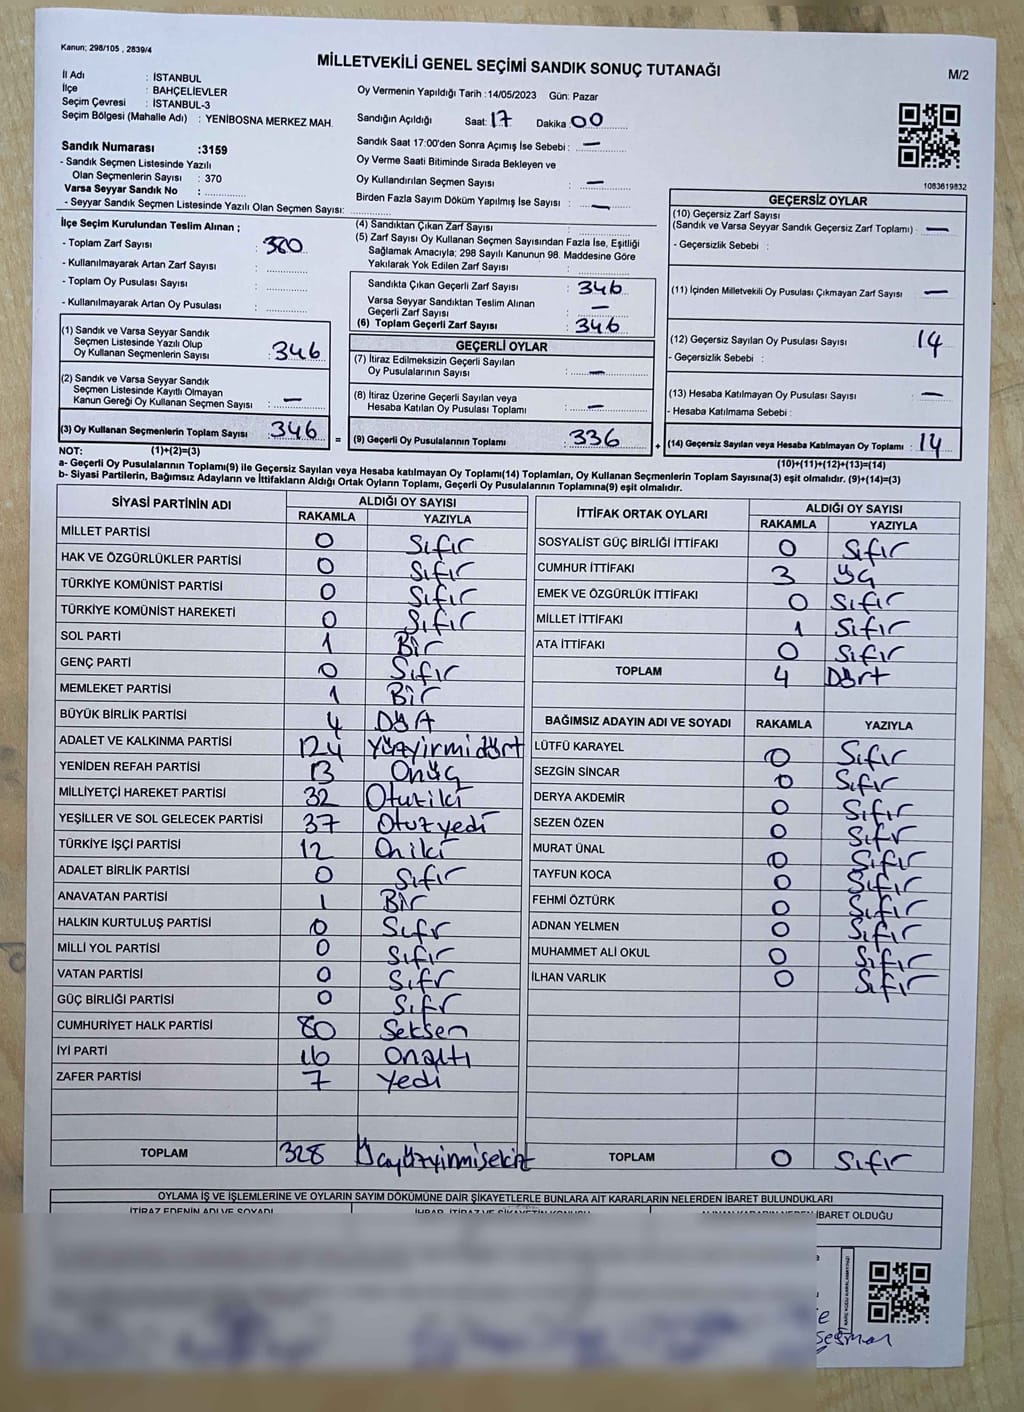 Kanun: 298/105 , 2839/4
MİLLETVEKİLİ GENEL SEÇİMİ SANDIK SONUÇ TUTANAĞI
M/2
İl Adı : İSTANBUL
İlçe : BAHÇELİEVLER
Seçim Çevresi : İSTANBUL-3
Seçim Bölgesi (Mahalle Adı) : YENİBOSNA MERKEZ MAH.
Oy Vermenin Yapıldığı Tarih :14/05/2023 Gün: Pazar
Sandığın Açıldığı Saat: 17 Dakika: 00
Sandık Saat 17:00'den Sonra Açımış İse Sebebi : —
Oy Verme Saati Bitiminde Sırada Bekleyen ve
Oy Kullandırılan Seçmen Sayısı : —
Birden Fazla Sayım Döküm Yapılmış İse Sayısı : —
Sandık Numarası :3159
- Sandık Seçmen Listesinde Yazılı
Olan Seçmenlerin Sayısı : 370
Varsa Seyyar Sandık No :
- Seyyar Sandık Seçmen Listesinde Yazılı Olan Seçmen Sayısı:
1083619832
İlçe Seçim Kurulundan Teslim Alınan ;
- Toplam Zarf Sayısı : 380
- Kullanılmayarak Artan Zarf Sayısı :
- Toplam Oy Pusulası Sayısı :
- Kullanılmayarak Artan Oy Pusulası :
(1) Sandık ve Varsa Seyyar Sandık
Seçmen Listesinde Yazılı Olup
Oy Kullanan Seçmenlerin Sayısı : 346
(2) Sandık ve Varsa Seyyar Sandık
Seçmen Listesinde Kayıtlı Olmayan
Kanun Gereği Oy Kullanan Seçmen Sayısı : —
(3) Oy Kullanan Seçmenlerin Toplam Sayısı : 346
(4) Sandıktan Çıkan Zarf Sayısı :
(5) Zarf Sayısı Oy Kullanan Seçmen Sayısından Fazla İse, Eşitliği
Sağlamak Amacıyla; 298 Sayılı Kanunun 98. Maddesine Göre
Yakılarak Yok Edilen Zarf Sayısı :
Sandıkta Çıkan Geçerli Zarf Sayısı : 346
Varsa Seyyar Sandıktan Teslim Alınan
Geçerli Zarf Sayısı : —
(6) Toplam Geçerli Zarf Sayısı : 346
GEÇERLİ OYLAR
(7) İtiraz Edilmeksizin Geçerli Sayılan
Oy Pusulalarının Sayısı : —
(8) İtiraz Üzerine Geçerli Sayılan veya
Hesaba Katılan Oy Pusulası Toplamı : —
= (9) Geçerli Oy Pusulalarının Toplamı : 336
GEÇERSİZ OYLAR
(10) Geçersiz Zarf Sayısı
(Sandık ve Varsa Seyyar Sandık Geçersiz Zarf Toplamı) : —
- Geçersizlik Sebebi :
(11) İçinden Milletvekili Oy Pusulası Çıkmayan Zarf Sayısı : —
(12) Geçersiz Sayılan Oy Pusulası Sayısı : 14
- Geçersizlik Sebebi :
(13) Hesaba Katılmayan Oy Pusulası Sayısı : —
- Hesaba Katılmama Sebebi :
+ (14) Geçersiz Sayılan veya Hesaba Katılmayan Oy Toplamı : 14
NOT: (1)+(2)=(3) (10)+(11)+(12)+(13)=(14)
a- Geçerli Oy Pusulalarının Toplamı(9) ile Geçersiz Sayılan veya Hesaba katılmayan Oy Toplamı(14) Toplamları, Oy Kullanan Seçmenlerin Toplam Sayısına(3) eşit olmalıdır. (9)+(14)=(3)
b- Siyasi Partilerin, Bağımsız Adayların ve İttifakların Aldığı Ortak Oyların Toplamı, Geçerli Oy Pusulalarının Toplamına(9) eşit olmalıdır.
SİYASİ PARTİNİN ADI ALDIĞI OY SAYISI
RAKAMLA YAZIYLA
MİLLET PARTİSİ 0 Sıfır
HAK VE ÖZGÜRLÜKLER PARTİSİ 0 Sıfır
TÜRKİYE KOMÜNİST PARTİSİ 0 Sıfır
TÜRKİYE KOMÜNİST HAREKETİ 0 Sıfır
SOL PARTİ 1 Bir
GENÇ PARTİ 0 Sıfır
MEMLEKET PARTİSİ 1 Bir
BÜYÜK BİRLİK PARTİSİ 4
ADALET VE KALKINMA PARTİSİ 124 Yüzyirmidört
YENİDEN REFAH PARTİSİ 13 Onüç
MİLLİYETÇİ HAREKET PARTİSİ 32 Otuziki
YEŞİLLER VE SOL GELECEK PARTİSİ 37 Otuzyedi
TÜRKİYE İŞÇİ PARTİSİ 12 Oniki
ADALET BİRLİK PARTİSİ 0 Sıfır
ANAVATAN PARTİSİ 1 Bir
HALKIN KURTULUŞ PARTİSİ 0 Sıfr
MİLLİ YOL PARTİSİ 0 Sıfır
VATAN PARTİSİ 0 Sıfr
GÜÇ BİRLİĞİ PARTİSİ 0 Sıfr
CUMHURİYET HALK PARTİSİ 80 Seksen
İYİ PARTİ 16 Onaltı
ZAFER PARTİSİ 7 Yedi
TOPLAM 328 Üçyüzyirmisekiz
İTTİFAK ORTAK OYLARI ALDIĞI OY SAYISI
RAKAMLA YAZIYLA
SOSYALİST GÜÇ BİRLİĞİ İTTİFAKI 0 Sıfır
CUMHUR İTTİFAKI 3 Üç
EMEK VE ÖZGÜRLÜK İTTİFAKI 0 Sıfır
MİLLET İTTİFAKI 1 Sıfır
ATA İTTİFAKI 0 Sıfır
TOPLAM 4 Dört
BAĞIMSIZ ADAYIN ADI VE SOYADI RAKAMLA YAZIYLA
LÜTFÜ KARAYEL 0 Sıfır
SEZGİN SİNCAR 0 Sıfır
DERYA AKDEMİR 0 Sıfır
SEZEN ÖZEN 0 Sıfr
MURAT ÜNAL 0 Sıfır
TAYFUN KOCA 0 Sıfır
FEHMİ ÖZTÜRK 0 Sıfır
ADNAN YELMEN 0 Sıfır
MUHAMMET ALİ OKUL 0 Sıfır
İLHAN VARLIK 0 Sıfır
TOPLAM 0 Sıfır
OYLAMA İŞ VE İŞLEMLERİNE VE OYLARIN SAYIM DÖKÜMÜNE DAİR ŞİKAYETLERLE BUNLARA AİT KARARLARIN NELERDEN İBARET BULUNDUKLARI
İTİRAZ EDENİN ADI VE SOYADI İHBAR, İTİRAZ VE ŞİKAYETİN KONUSU ALINAN KARARIN NEDEN İBARET OLDUĞU